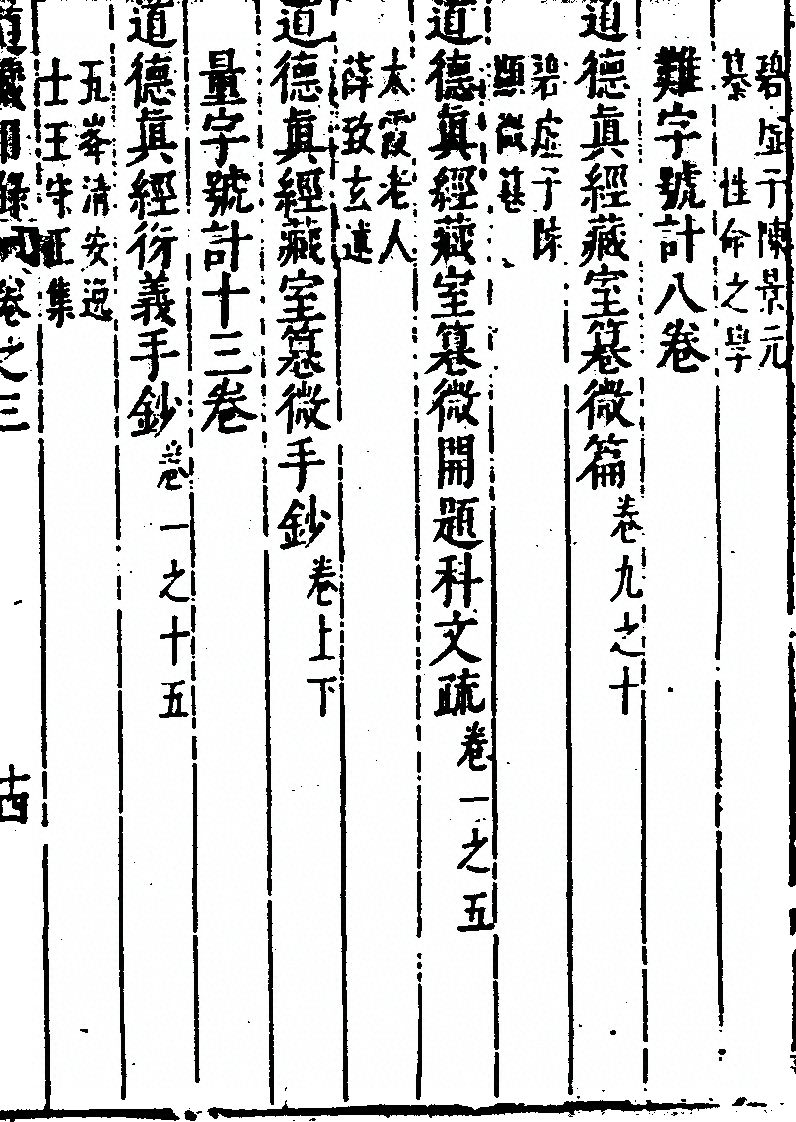 碧虛子陳景元
纂　性命之學
難字號計八卷
道德眞經藏室纂微篇卷九之十
碧虛子陳
顯微纂
道德眞經藏室纂微開題科文疏卷一之五
太霞老人
薛致玄述
道德眞經藏室纂微手鈔卷上下
量字號計十三卷
道德眞經衍義手鈔卷一之十五
五峯清安逸
士王守正集
道藏目錄 卷之三
十四